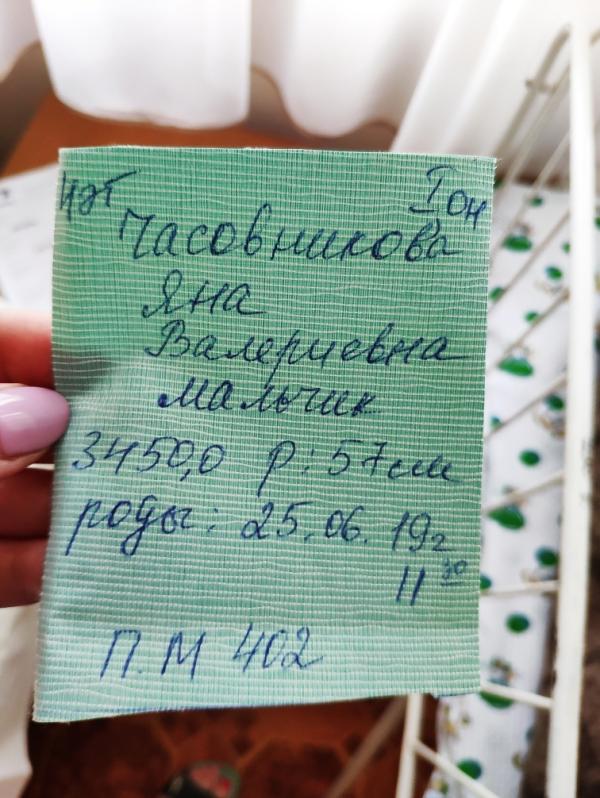 I он
Часовникова
Яна
Валериевна
мальчик
3450,0 р: 57см
роды: 25.06.19г
11 30
П.М 402